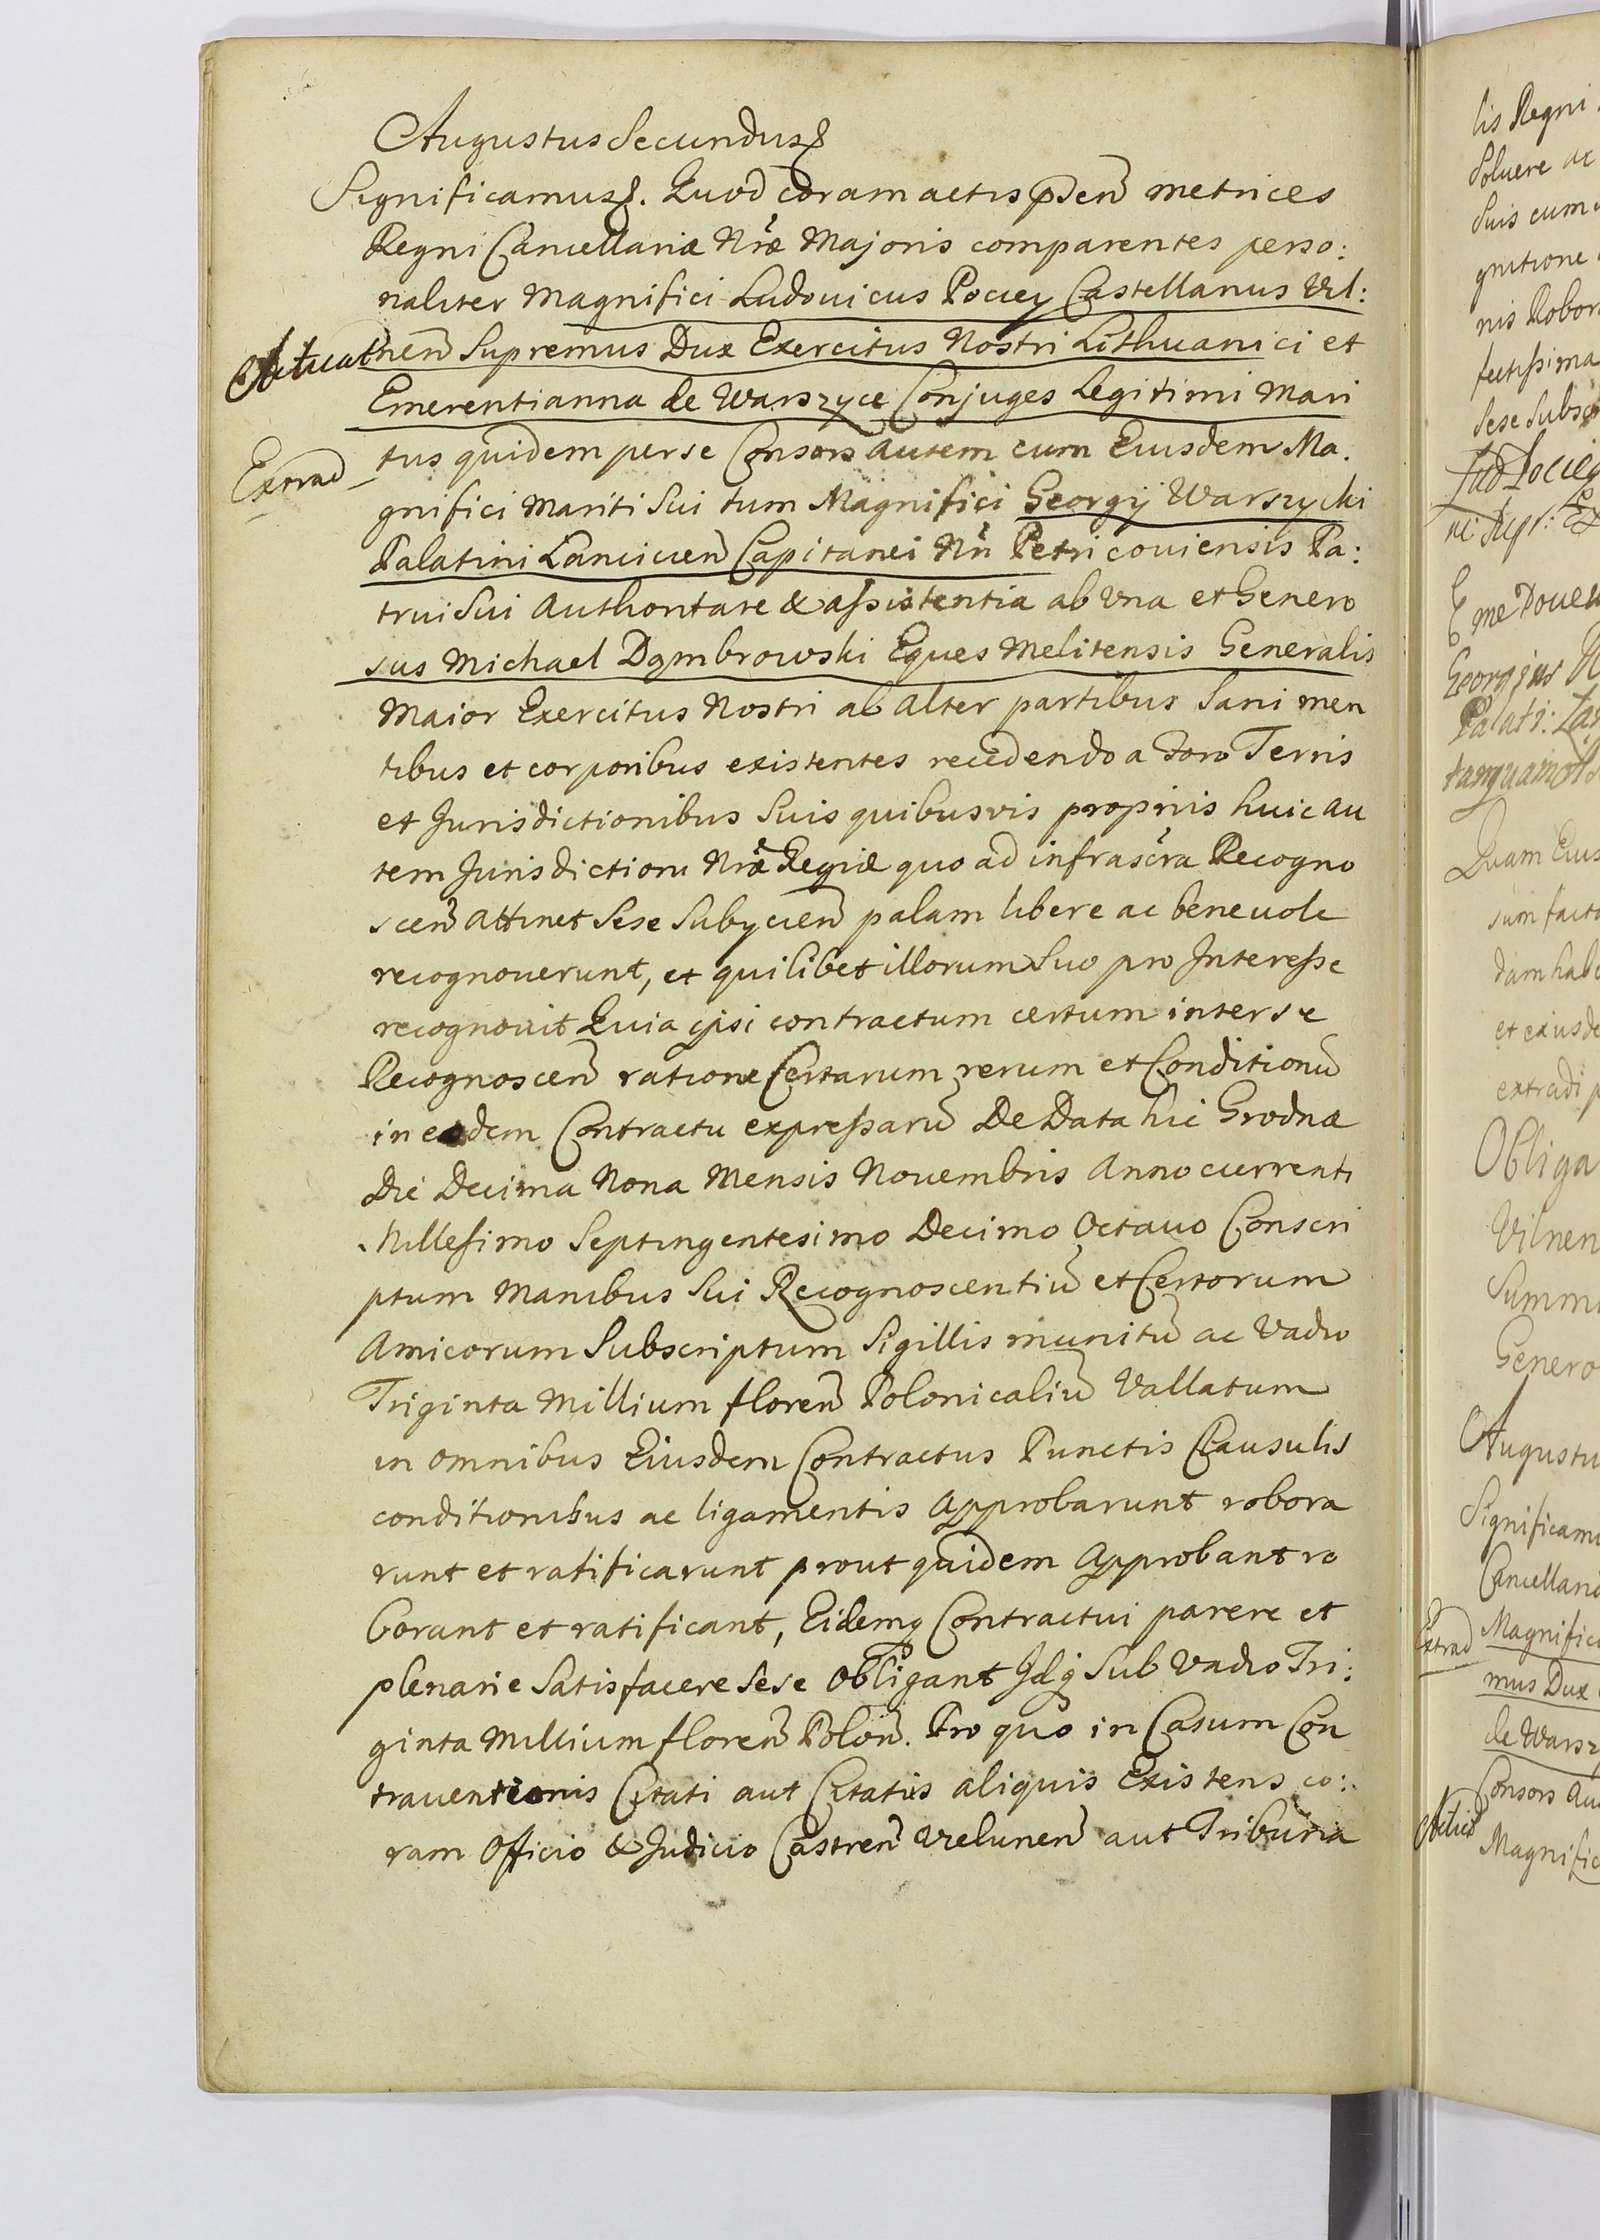 Augustus Secundus
Significamus. Quod coram actis psen metrices
Regni Cancellariæ Nræ Majoris comparentes perso:
naliter Magnifici Ludovicus Pociey Castellanus Vil:
Actuat
nen Supremus Dux Exercitus Nostri Lithuanici et
Emerentianna de Warszyce Conjuges Legitimi Mari
Extrad
tus quidem per se Consors autem cum Eiusdem Ma.
gnifici Mariti Sui tum Magnifici Georgij Warszycki
Palatini Lancicien Capitanei Nri Petricouiensis Pa:
trui Sui Authoritate & assistentia ab Vna et Genero
sus Michael Dąmbrowski Eques Melitensis Generalis
Maior Exercitus Nostri ab Alter partibus Sani men
tibus et corporibus existentes recedendo a Foro Terris
et Jurisdictionibus Suis quibusvis proprijs huic au
tem Jurisdictioni Nræ Regiæ quo ad infrascra Recogno
scen attinet Sese Subycien palam libere ac beneuole
recognouerunt, et quilibet illorum Suo pro Interesse
recognouit Quia ipsi contractum certum inter se
Recognoscen ratione Certarum rerum et Conditionu
in eodem Contractu expressaru De Data hic Grodnæ
Die Decima Nona Mensis Nouembris Anno currenti
Millesimo Septingentesimo Decimo Octauo Conscri
ptum Manibus Sui Recognoscentiu et Certorum
Amicorum Subscriptum Sigillis munitu ac Vadio
Triginta Millium floren Polonicaliu Vallatum
in omnibus Eiusdem Contractus Punctis Clausulis
conditionibus ac ligamentis Approbarunt robora
runt et ratificarunt prout quidem Approbant ro
borant et ratificant, Eidemq Contractui parere et
plenarie Satisfacere Sese Obligant Idq Sub Vadio Tri:
ginta Millium floren Polon. Pro quo in Casum Con
trauentionis Citati aut Citatus aliquis Existens co:
ram Officio & Judicio Castren Velunen aut Tribuna
lis Regni
Soluere ac
Suis cum
gnitione
nis Robor
fectissima
Sese Subsc
Lud Pociey
me Pouew
Georgius
Palati:
tanquam
Quam Eius
sum facto
dam habe
et eiusde
extradi p
Obliga
Vilnen
Summ
Genero
Augustu
Significamu
Cancellariæ
Extrad
Magnifici
mus Dux
de Warsz
Consors Au
Magnific